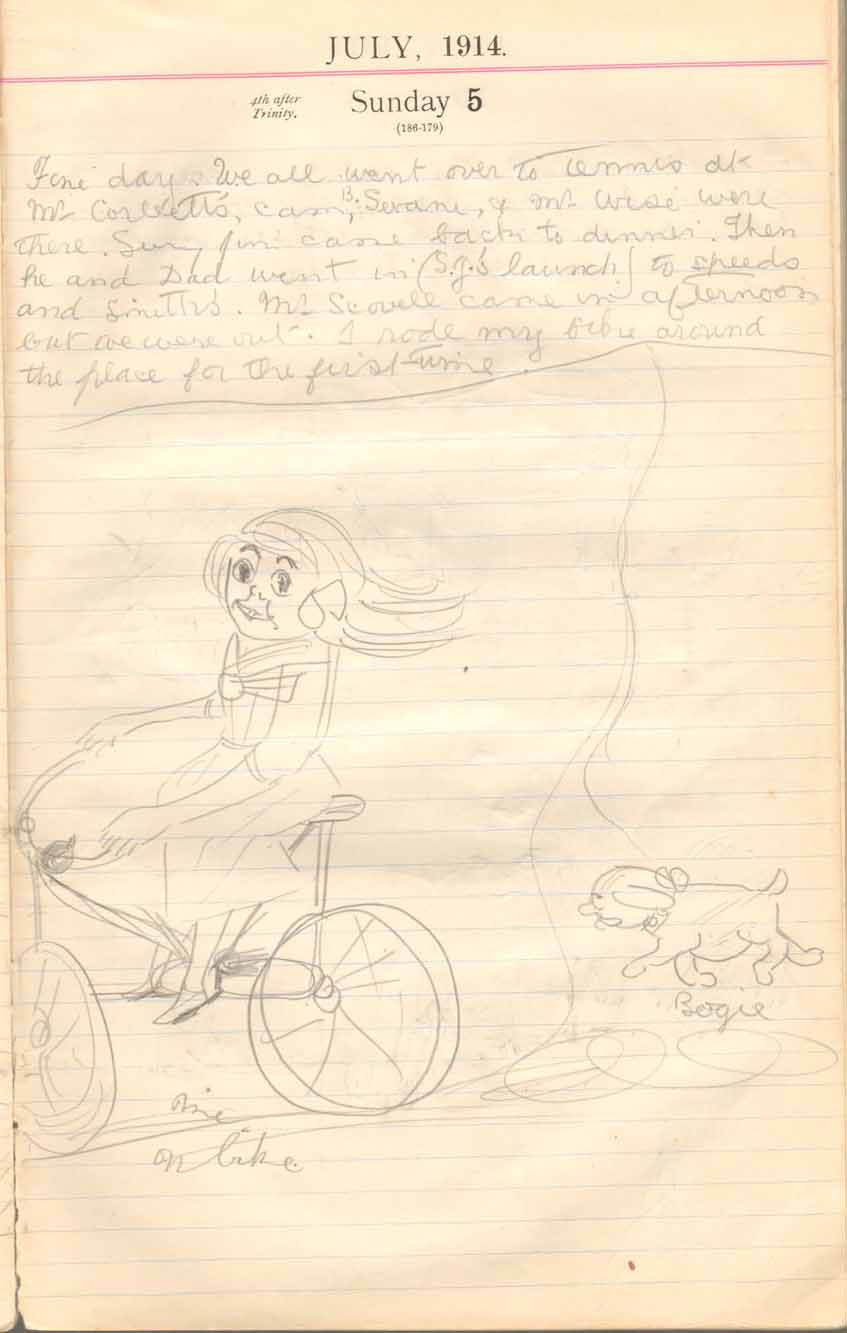 JULY, 1914.
4th after
Trinity.
Sunday 5
(186-179)
Fine day. We all went over to tennis at
Mr Corbett's, B. Swane, & Mr Wise were
there. Jim came back to dinner. Then
he and Dad went in (S.J.'s launch) to speeds
and Smith's. Mr Scovell came in afternoon
but we were out. I rode my bike around
the place for the first time.
Bogie
Me
on bike